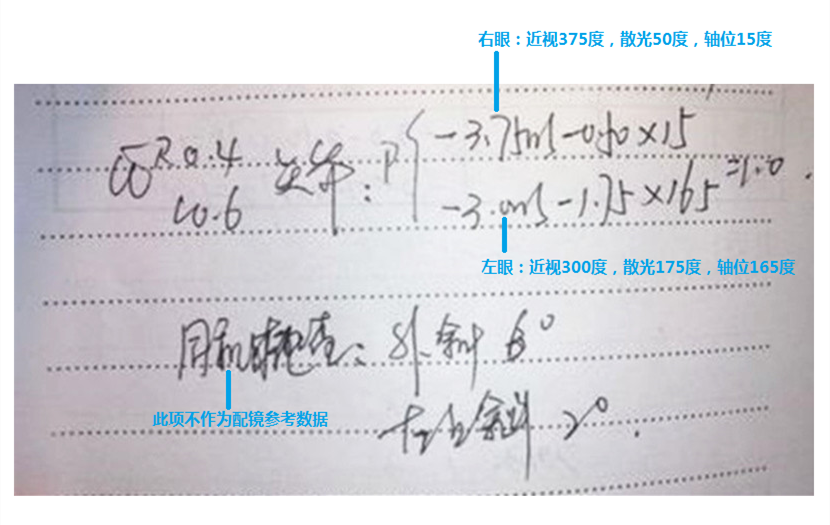 右眼：近视375度，散光50度，轴位15度
R 0.4
-3.75DS -0.50×15
L0.6
-3.0DS -1.75×165 =1.0
左眼：近视300度，散光175度，轴位165度
同机检查：外斜 6°
此项不作为配镜参考数据
斜 2°.